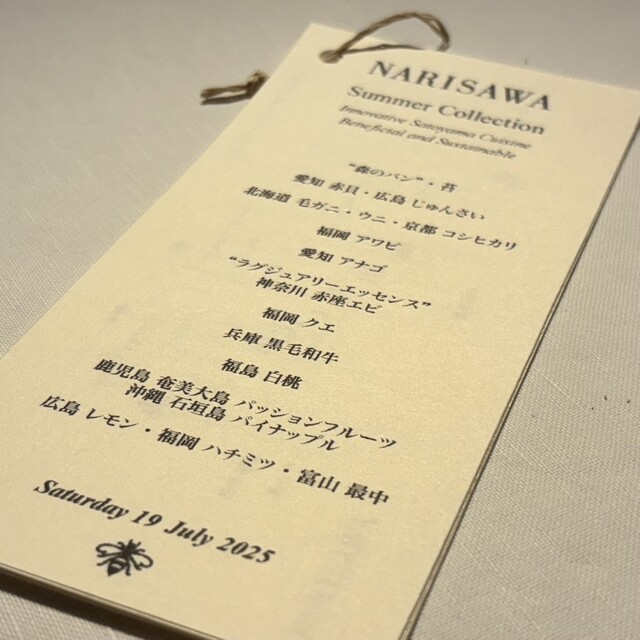 NARISAWA
Summer Collection
Innovative Satoyama Cuisine
Beneficial and Sustainable
“森のパン”・苔
愛知 赤貝・広島 じゅんさい
北海道 毛ガニ・ウニ・京都 コシヒカリ
福岡 アワビ
愛知 アナゴ
“ラグジュアリーエッセンス”
神奈川 赤座エビ
福岡 クエ
兵庫 黒毛和牛
福島 白桃
鹿児島 奄美大島 パッションフルーツ
沖縄 石垣島 パイナップル
広島 レモン・福岡 ハチミツ・富山 最中
Saturday 19 July 2025